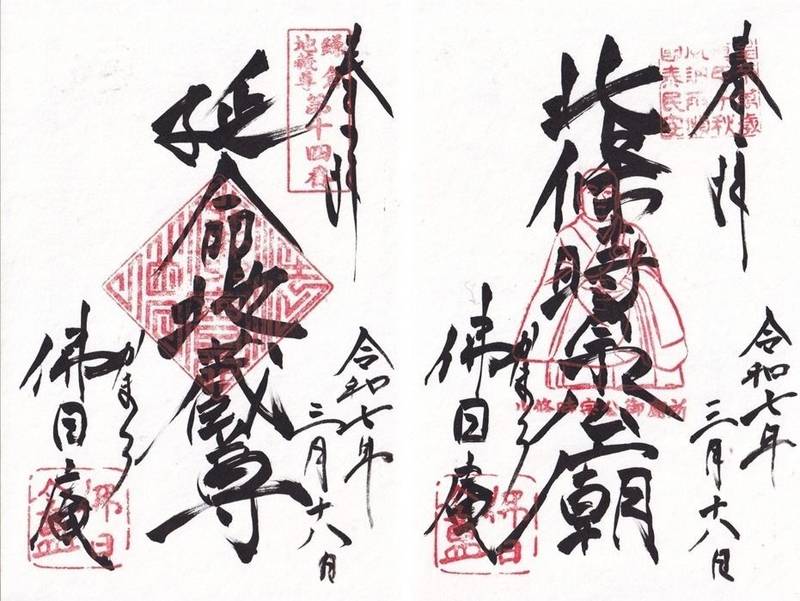 奉拝
鎌倉
地蔵尊第十四番
延命地蔵尊
令和七年
三月十八日
かまくら
佛日庵
奉拝
北條時宗公廟
北條時宗公御廟所
令和七年
三月十八日
かまくら
佛日庵